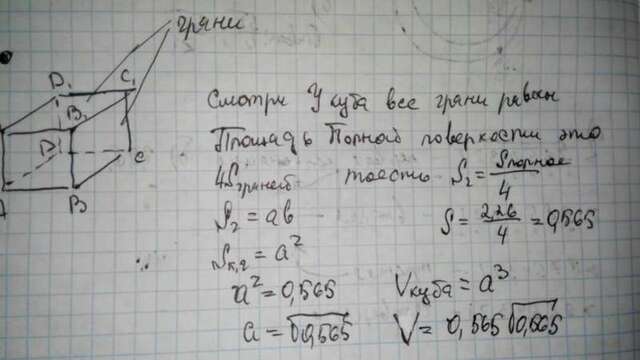 грани
D₁ C₁
B₁
D C
A B
Смотри У куба все грани равны
Площадь Полной поверхости это
4Sграней тоесть S₂ = Sполное/4
S₂ = ab S = 2,26/4 = 0,565
Sкв = a²
a² = 0,565 Vкуба = a³
a = √0,565 V = 0,565√0,565